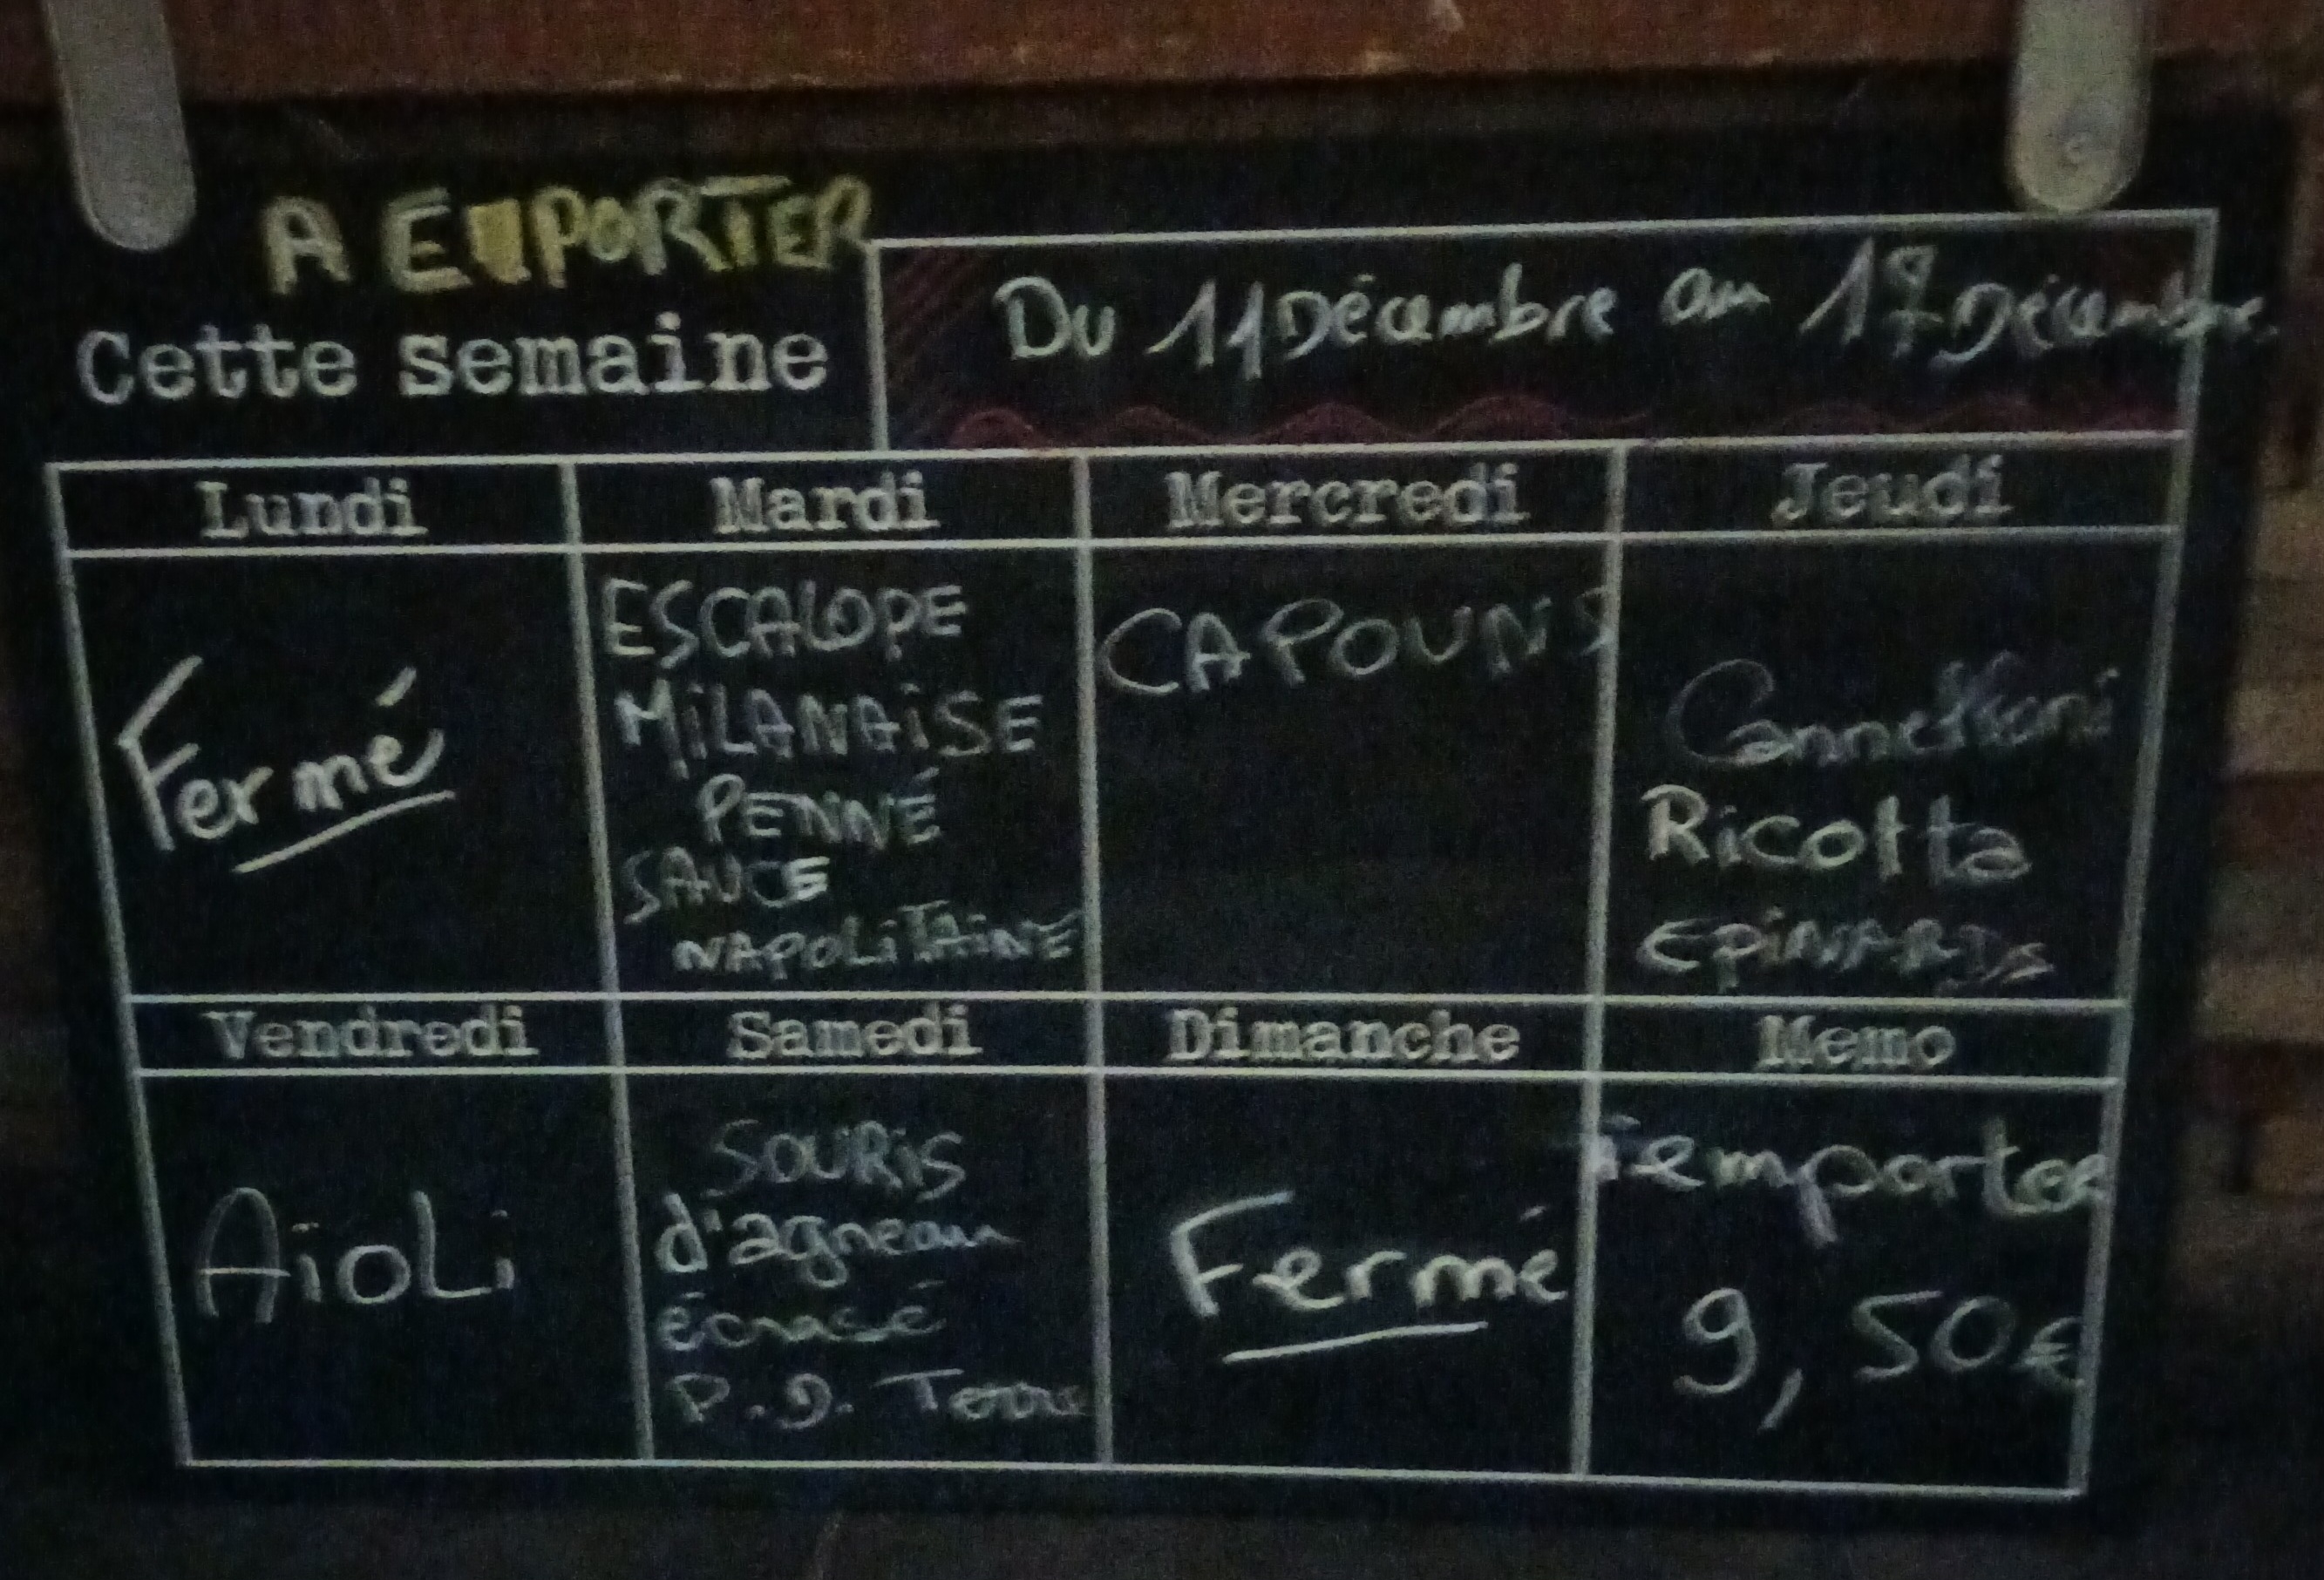 A EMPORTER
Cette semaine
Du 11 Décembre au 17 Décembre.
Lundi
Fermé
Mardi
ESCALOPE
MiLANAiSE
PENNÉ
SAUCE
NAPOLiTAiNE
Mercredi
CAPOUNS
Jeudi
Cannelloni
Ricotta
EPiNARDs
Vendredi
AïoLi
Samedi
SOURiS
d'agneau
écrasé
P.D. Terre
Dimanche
Fermé
Memo
emporter
9,50€